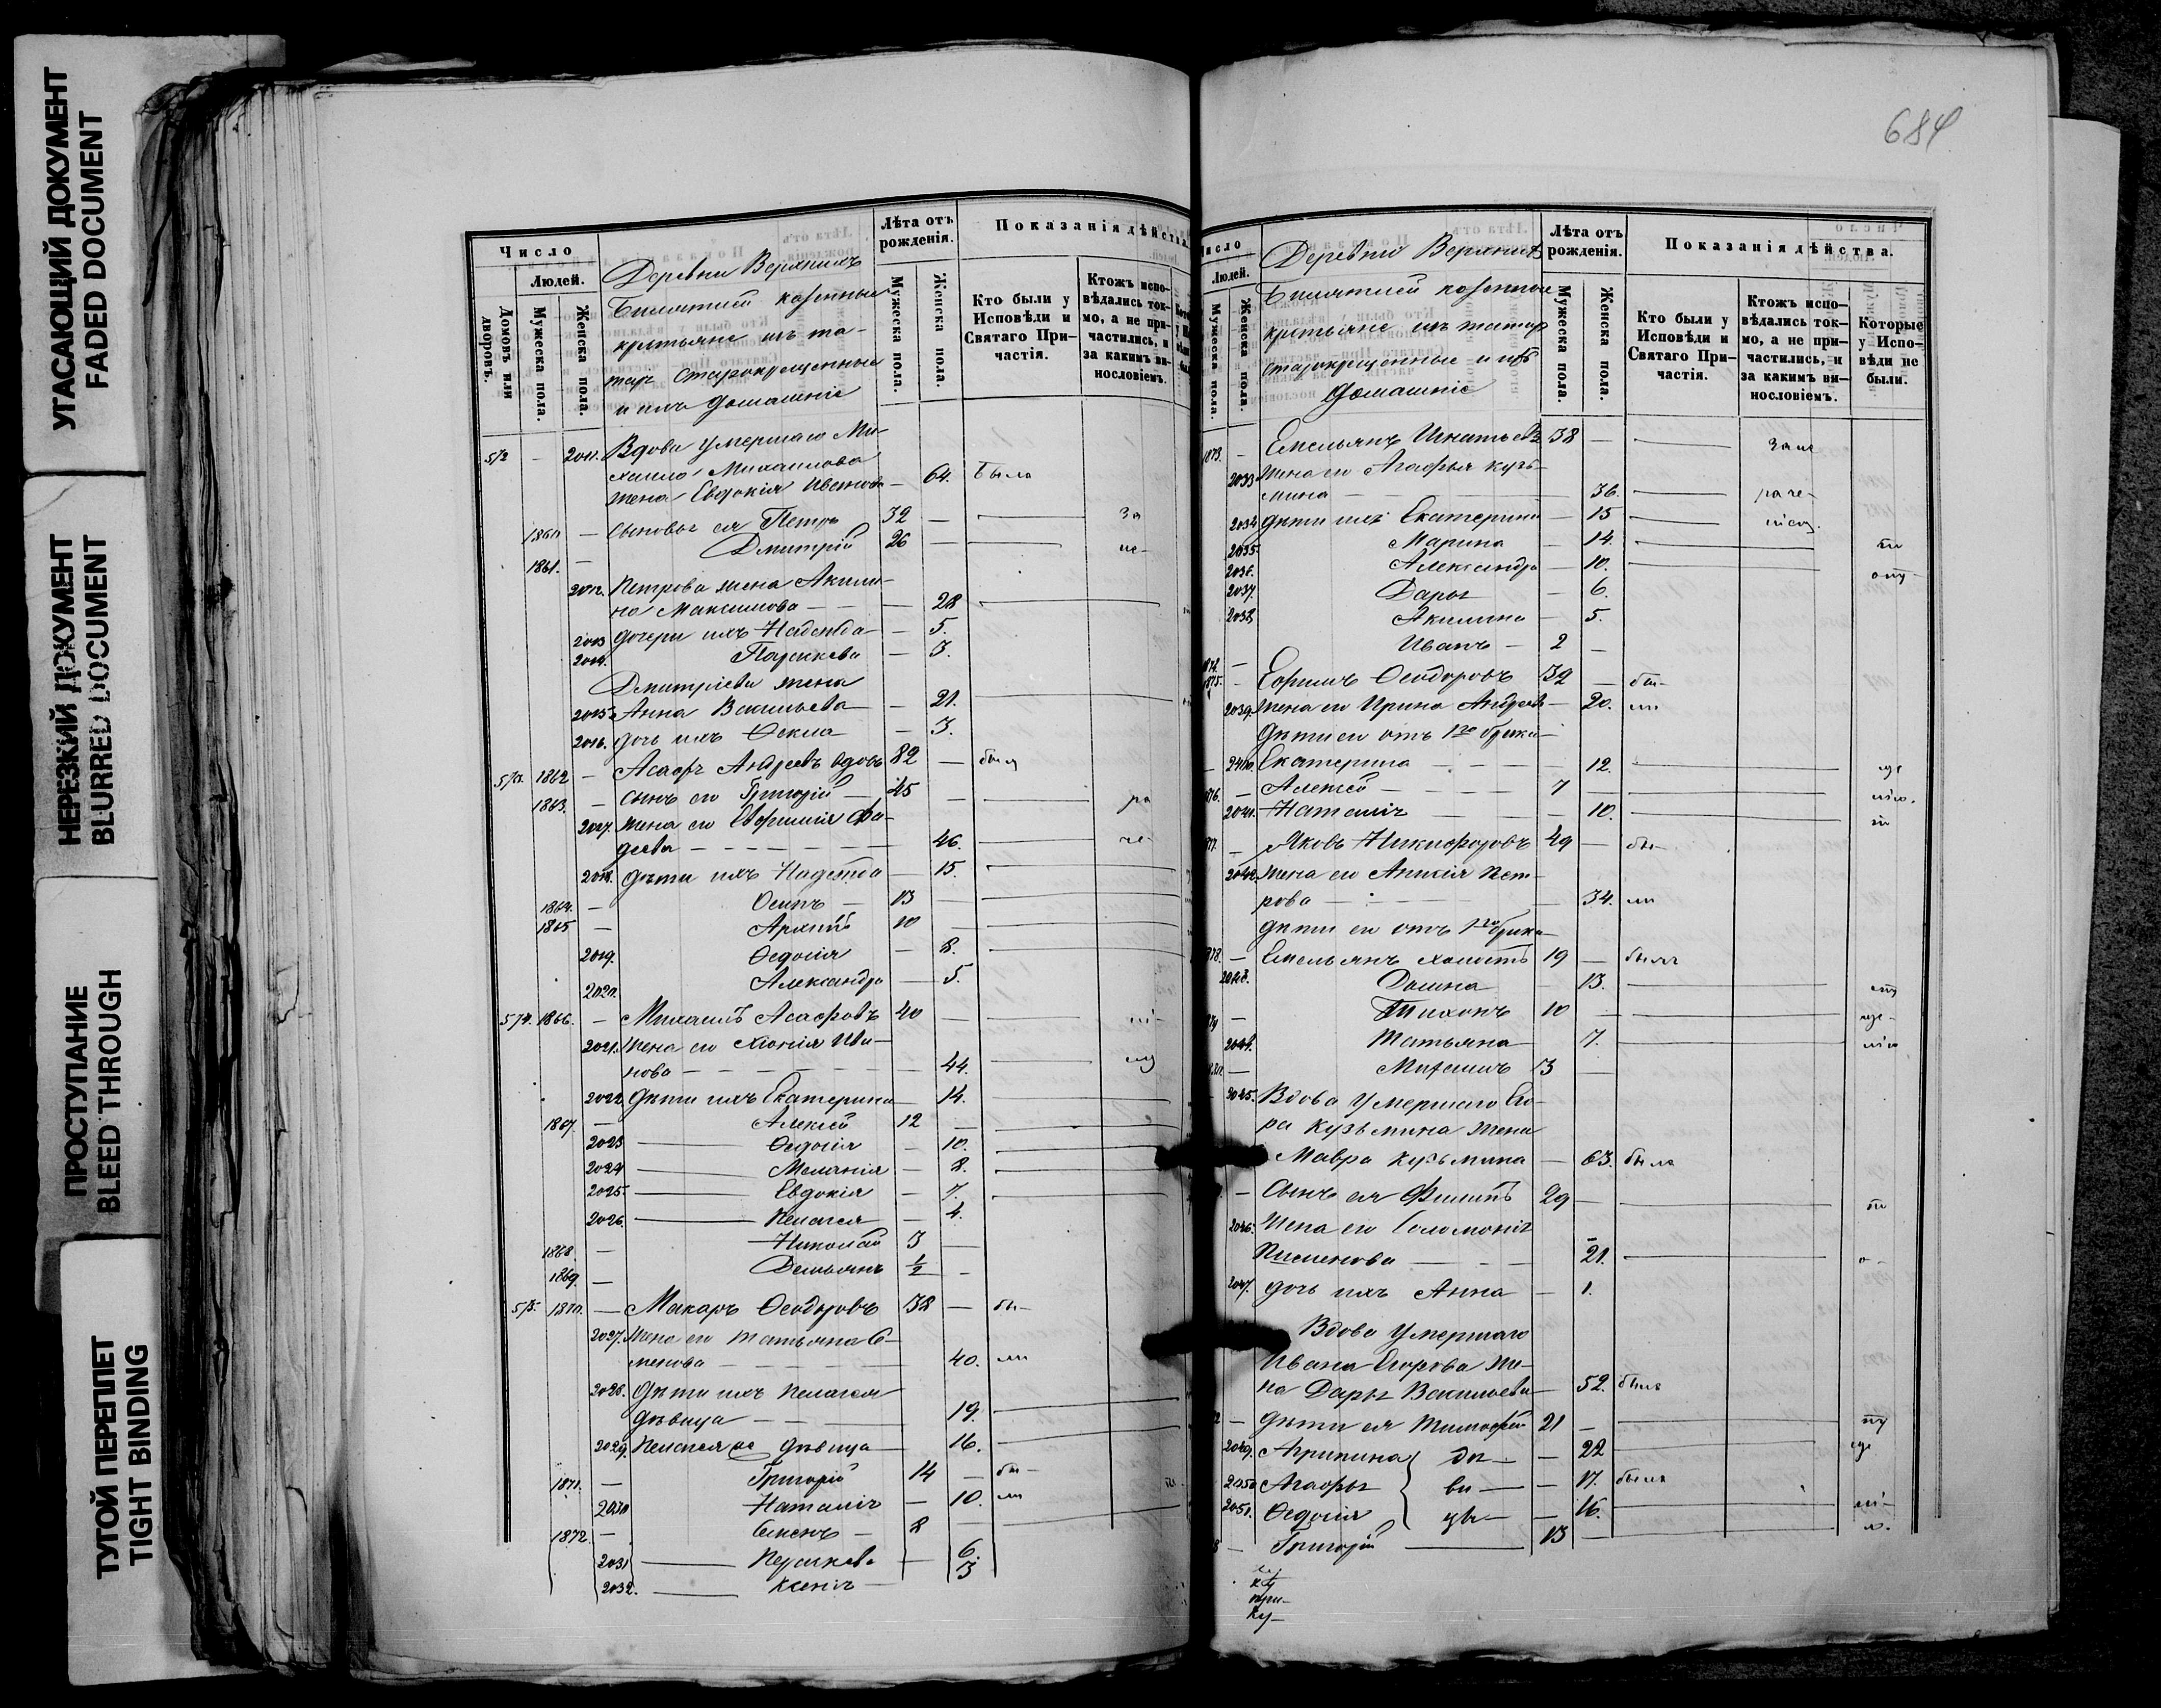 УГАСАЮЩИЙ ДОКУМЕНТ
FADED DOCUMENT
НЕРЕЗКИЙ ДОКУМЕНТ
BLURRED DOCUMENT
ПРОСТУПАНИЕ
BLEED THROUGH
ТУГОЙ ПЕРЕПЛЕТ
TIGHT BINDING
Число
Людей.
Домовъ или дворовъ.
Мужеска пола.
Женска пола.
Деревни Верхнихъ
казенные
крестьяне изъ та-
таръ старокрещенные
и ихъ домашніе
Лѣта отъ рожденія.
Мужеска пола.
Женска пола.
Показанія дѣйства.
Кто были у Исповѣди и Святаго При-частія.
Ктожъ испо-вѣдались ток-мо, а не при-частились, и за какимъ ви-нословіемъ.
572 — 2011. Вдова умершаго Ми-
хаила Михаилова
жена Евдокія — 64. была
1860 — Сыновья ея Петръ 32 — За
1861. — Дмитрій 26 — не-
2012. Петрова жена Акили-
на Максимова — 28
2013 дочери ихъ Надежда — 5.
2014. Параскева — 3.
Дмитріева жена
2015. Анна Васильева — 21.
2016. дочь ихъ Ѳекла — 3.
573. 1862 — Асафъ Андреевъ вдовъ 82 — былъ
1863. — сынъ его Григорій — 45 — ра
2017. жена его Евфимія Фа-
деева — 46. че-
2018. дѣти ихъ Надежда — 15.
1864. — Осипъ — 13
1865 — Архипъ 10
2019. Ѳедосія — 8.
2020. Александра — 5.
574. 1866. — Михаилъ Асафовъ 40 — ні-
2021. жена его Хіонія Ива-
нова — 44.
2022 дѣти ихъ Екатерина — 14.
1867 — Алексей 12
2023 Ѳедосія — 10.
2024 Меланія — 8.
2025. Евдокія — 7.
2026. Пелагея — 4.
1868. — Николай 3 —
1869. — Демьянъ ½ —
575. 1870. — Макаръ Ѳеодоровъ 38 — бы-
2027. жена его Татьяна Се-
менова — 40. ли
2028. дѣти ихъ Пелагея
дѣвица — 19.
2029. Пелагея же дѣвица 16.
1871. — Григорій 14 — бы-
2030 Наталія — 10. ли
1872. — Семенъ — 8
2031 Параскева — 6.
2032. Ксенія — 3
684
Число
Людей.
Мужеска пола.
Женска пола.
Деревни Верхнихъ
казенные
крестьяне изъ татаръ
старокрещенные и ихъ
домашніе
Лѣта отъ рожденія.
Мужеска пола.
Женска пола.
Показанія дѣйства.
Кто были у Исповѣди и Святаго При-частія.
Ктожъ испо-вѣдались ток-мо, а не при-частились, и за какимъ ви-нословіемъ.
Которые у Испо-вѣди не были.
1873. — Емельянъ Игнатьевъ 38 — за не
2033 жена его Агафья Кузь-
мина — 36. раче-
2034 дѣти ихъ Екатерина — 15
2035. Марина — 14.
2036. Александра — 10.
2037. Дарья — 6.
2038 Акилина — 5.
1874. — Иванъ — 2 —
1875. — Ефимъ Ѳеодоровъ 32 — бы-
2039. жена его Ирина Андреева — 20. ли
дѣти его отъ 1го брака
2040. Екатерина — 12.
1876. — Алексей — 7
2041. Наталія — 10.
1877. — Яковъ Никифоровъ 49 — бы-
2042. жена его Анисія Пет-
рова — 34. ли
дѣти его отъ 1го брака
1878. — Емельянъ холостъ 19 — былъ
2043. Домна 13.
1879 — Тихонъ 10
2044. Татьяна 7.
— Михаилъ 3 —
2045. Вдова умершаго Его-
ра Кузьмина жена
Мавра Кузьмина — 63. была
— сынъ ея Филипъ 29
2046. жена его Соломонія
Пименова — 21.
2047. дочь ихъ Анна — 1.
Вдова умершаго
Ивана Егорова же-
на Дарья Васильева — 52. была
— дѣти ея Тимофей 21 —
2049. Агрипина дѣ — 22
2050 Агафья ви — 17. была
2051. Ѳедосія цы — 16.
— Григорій 13